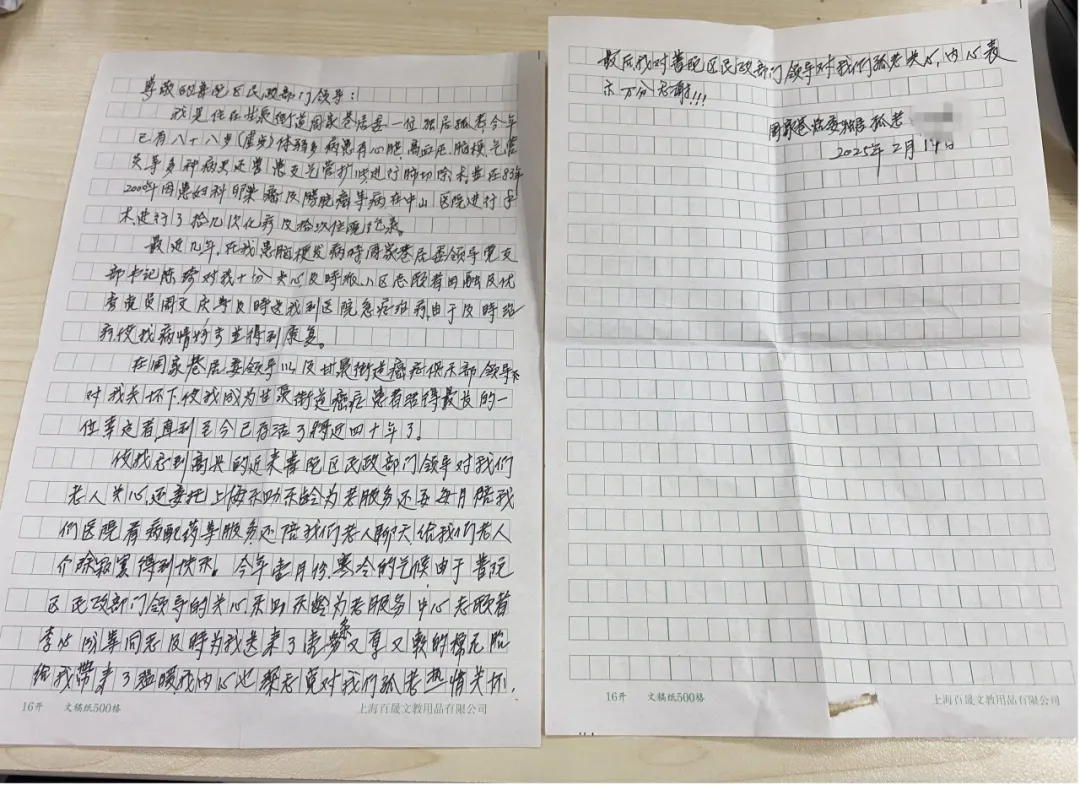 尊敬的普陀区民政部门领导：
我是住在甘泉街道周家巷居委一位独居孤老今年
已有八十八岁(虚岁)体弱多病患有心脏、高血压、脑梗、气管
炎等多种病史还曾患支气管扩张进行肺切除术、曾在83年
2000年因患妇科卵巢癌及膀胱癌等病在中山医院进行手
术、进行了拾几次化疗及拾次住院记录。
最近几年,在我患脑梗发病時周家巷居委领导党支
部书记陈 对我十分关心及時派小区志愿者田 及优
秀党员周文庆等及時送我到医院急症治疗,由于及時治
疗,使我病情好전并得到康复。
在周家巷居委领导以及甘泉街道癌症俱乐部领导
对我关怀下,使我成为甘泉街道癌症患者活得最长的一
位幸运者直到至今已存活了将近四十年了。
使我感到高兴的近来普陀区民政部门领导对我们
老人关心,还委托上海乐助乐龄为老服务还每月陪我
们医院看病配药等服务还陪我们老人聊天给我们老人
介除寂寞得到快乐。今年壹月份,寒冷的气候,由于普陀
区民政部门领导的关心乐助乐龄为老服务中心志愿者
李 等同志及時为我送来了壹条又厚又软的棉花胎
给我带来了温暖我内心也 对我们孤老热情关怀,
16开 文稿纸500格 上海百晟文教用品有限公司
最后,我对普陀区民政部门领导对我们孤老关心,内心表
示万分感谢!!!
周家巷居委独居孤老
2025年2月19日
16开 文稿纸500格 上海百晟文教用品有限公司